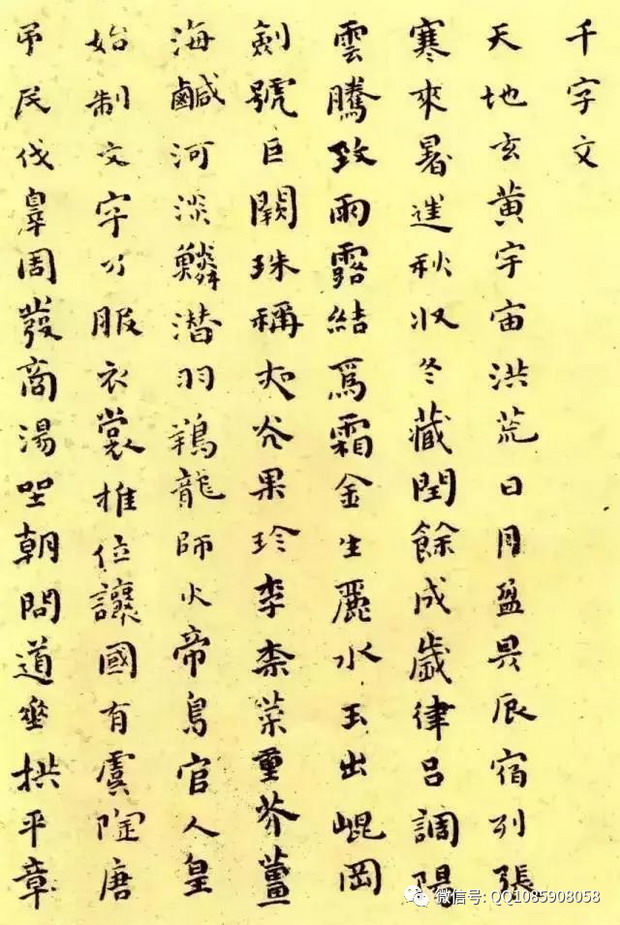 千字文
天地玄黃宇宙洪荒日月盈昃辰宿列張
寒來暑進秋収冬藏閏餘成歲律吕調陽
雲騰致雨露結爲霜金生麗水玉出崐岡
劍號巨闕珠稱夜光果珍李柰菜重芥薑
海鹹河淡鱗潛羽翔龍師火帝鳥官人皇
始制文字乃服衣裳推位讓國有虞陶唐
弔民伐辠周發商湯坐朝問道垂拱平章
微信号: QQ1085908058